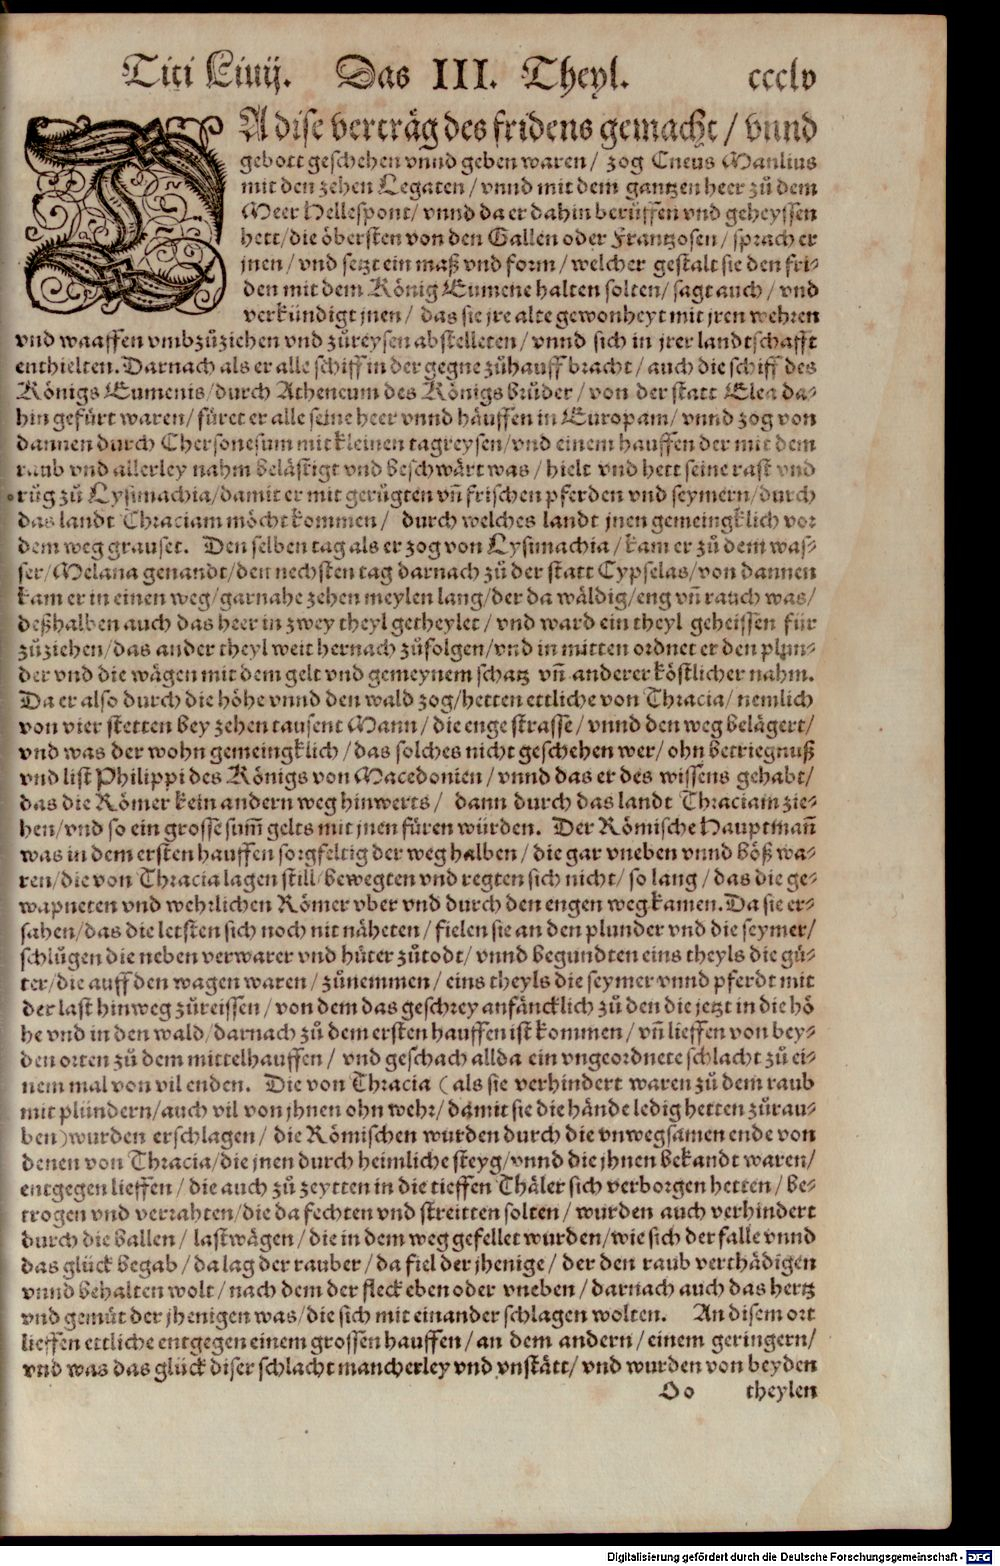 Titi Liuij. Das III. Theyl. ccclv
DA dise verträg des fridens gemacht / vnnd
gebott geschehen vnnd geben waren / zog Cneus Manlius
mit den zehen Legaten / vnnd mit dem gantzen heer zů dem
Meer Hellespont / vnnd da er dahin berůffen vnd geheyssen
hett / die öbersten von den Gallen oder Frantzosen / sprach er
jnen / vnd setzt ein maß vnd form / welcher gestalt sie den fri⸗
den mit dem König Eumene halten solten / sagt auch / vnd
verkündigt jnen / das sie jre alte gewonheyt mit jren wehren
vnd waaffen vmbzůziehen vnd zůreysen abstelleten / vnnd sich in jrer landtschafft
enthielten. Darnach als er alle schiff in der gegne zůhauff bracht / auch die schiff des
Königs Eumenis / durch Atheneum des Königs brůder / von der statt Elea da⸗
hin gefürt waren / füret er alle seine heer vnnd häuffen in Europam / vnnd zog von
dannen durch Chersonesum mit kleinen tagreysen / vnd einem hauffen der mit dem
raub vnd allerley nahm belästigt vnd beschwärt was / hielt vnd hett seine rast vnd
růg zů Lysimachia / damit er mit gerůgten vñ frischen pferden vnd seymern / durch
das landt Thraciam möcht kommen / durch welches landt jnen gemeingklich vor
dem weg grauset. Den selben tag als er zog von Lysimachia / kam er zů dem was⸗
ser / Melana genandt / den nechsten tag darnach zů der statt Cypselas / von dannen
kam er in einen weg / garnahe zehen meylen lang / der da wäldig / eng vñ rauch was /
deßhalben auch das heer in zwey theyl getheylet / vnd ward ein theyl geheissen für
zůziehen / das ander theyl weit hernach zůfolgen / vnd in mitten ordnet er den plun⸗
der vnd die wägen mit dem gelt vnd gemeynem schatz vñ anderer köstlicher nahm.
Da er also durch die höhe vnnd den wald zog / hetten ettliche von Thracia / nemlich
von vier stetten bey zehen tausent Mann / die enge strasse / vnnd den weg belägert /
vnd was der wohn gemeingklich / das solches nicht geschehen wer / ohn betriegnuß
vnd list Philippi des Königs von Macedonien / vnnd das er des wissens gehabt /
das die Römer kein andern weg hinwerts / dann durch das landt Thraciam zie⸗
hen / vnd so ein grosse sum̃ gelts mit jnen füren würden. Der Römische Hauptmañ
was in dem ersten hauffen sorgfeltig der weg halben / die gar vneben vnnd böß wa⸗
ren / die von Thracia lagen still / bewegten vnd regten sich nicht / so lang / das die ge⸗
wapneten vnd wehrlichen Römer vber vnd durch den engen weg kamen. Da sie er⸗
sahen / das die letsten sich noch nit näheten / fielen sie an den plunder vnd die seymer /
schlůgen die neben verwarer vnd hüter zůtodt / vnnd begundten eins theyls die gü⸗
ter / die auff den wagen waren / zůnemmen / eins theyls die seymer vnnd pferdt mit
der last hinweg zůreissen / von dem das geschrey anfäncklich zů den die jetzt in die hö
he vnd in den wald / darnach zů dem ersten hauffen ist kommen / vñ lieffen von bey⸗
den orten zů dem mittelhauffen / vnd geschach allda ein vngeordnete schlacht zů ei⸗
nem mal von vil enden. Die von Thracia ( als sie verhindert waren zů dem raub
mit plündern / auch vil von jhnen ohn wehr / damit sie die hände ledig hetten zůrau⸗
ben ) wurden erschlagen / die Römischen wurden durch die vnwegsamen ende von
denen von Thracia / die jnen durch heimliche steyg / vnnd die jhnen bekandt waren /
entgegen lieffen / die auch zů zeytten in die tieffen Thäler sich verborgen hetten / be⸗
trogen vnd verrahten / die da fechten vnd streitten solten / wurden auch verhindert
durch die ballen / lastwägen / die in dem weg gefellet wurden / wie sich der falle vnnd
das glück begab / da lag der rauber / da fiel der jhenige / der den raub verthädigen
vnnd behalten wolt / nach dem der fleck eben oder vneben / darnach auch das hertz
vnd gemüt der jhenigen was / die sich mit einander schlagen wolten. An disem ort
lieffen ettliche entgegen einem grossen hauffen / an dem andern / einem geringern /
vnd was das glück diser schlacht mancherley vnd vnstätt / vnd wurden von beyden
Oo theylen
Digitalisierung gefördert durch die Deutsche Forschungsgemeinschaft - DFG